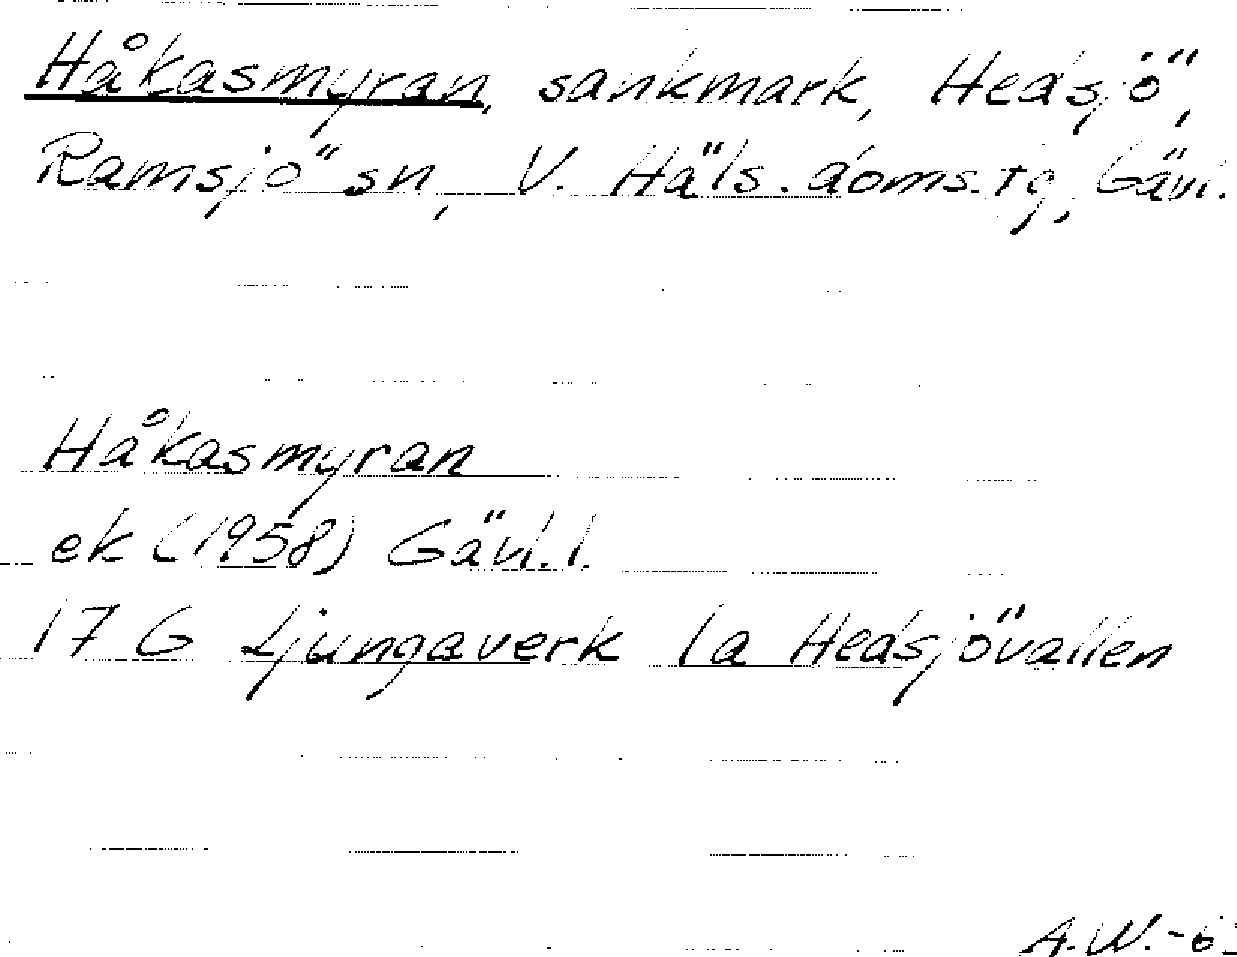 Håkasmyran, sankmark, Hedsjö,
Ramsjö sn, V. Häls. doms.tg, Gävl.
Håkasmyran
ek (1958) Gävl.l.
17 G Ljungaverk 1a Hedsjövallen
A.W.